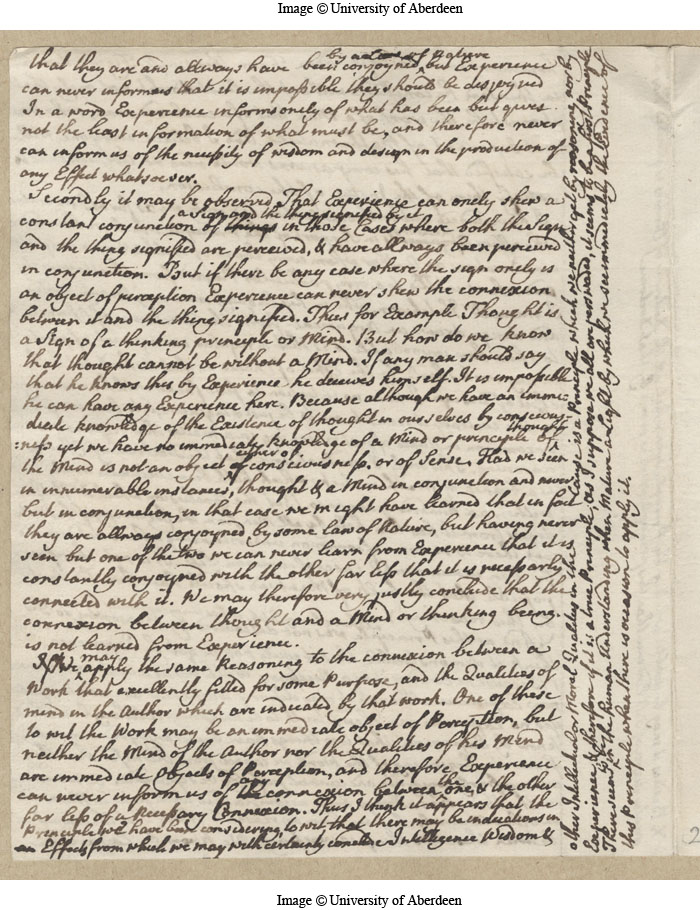 Image © University of Aberdeen
by a Law of Nature
that they are and allways have been conjoyned, but Experience
can never inform us that it is impossible they should be disjoyned
In a word Experience informs onely of what has been but gives
not the least information of what must be, and therefore never
can inform us of the necessity of wisdom and design in the production of
any Effect whatsoever.
Secondly it may be observed That Experience can onely shew a
a Sign and the thing signified by it
constant conjunction of things in those Cases where both the Sign
and the thing signified are perceived, & have allways been perceived
in conjunction. But if there be any case where the sign onely is
an object of perception Experience can never shew the connexion
between it and the thing signified. Thus for Example Thought is
a Sign of a thinking principle or Mind. But how do we know
that thought cannot be without a Mind. If any man should say
that he knows this by Experience he deceives himself. It is impossible
he can have any Experience here. Because although we have an imme-
diate knowledge of the Existence of thought in ourselves by conscious-
thought
:ness yet we have no immediate knowledge of a Mind or principle of
either of
the Mind is not an object of consciousness. or of Sense. Had we seen
in innumerable instances, thought & a Mind in conjunction and never
but in conjunction, in that case we might have learned that in fact
they are allways conjoyned by some law of Nature, but having never
seen but one of the two we can never learn from Experience that it is
constantly conjoyned with the other far less that it is necessarly
connected with it. We may therefore very justly conclude that the
connexion between thought and a Mind or thinking being.
is not learned from Experience.
may
If We apply the same Reasoning to the connexion between a
Work that excellently fitted for some Purpose, and the Qualities of
mind in the Author which are indicated by that work. One of these
to wit the Work may be an immediate object of Perception, but
neither the Mind of the Author nor the Qualities of his Mind
are immediate objects of Perception, and therefore Experience
any the
can never inform us of the connexion between one, & the other
far less of a Necessary Connexion. Thus I think it appears that the
Principle we have been considering to wit that there may be indications in
an Effects from which we may with certainty conclude Intelligence Wisdom &
other Intellectual or Moral Qualities in the Cause is a Principle which we neither get by reasoning nor by
Experience & therefore if it is a true Principle, as I suppose we all are perswaded, it seems to be a first Principle
There seems to be in the human Understanding when Mature a by which we see immediately the Evidence of
this Principle when there is occasion to apply it.
2
Image © University of Aberdeen